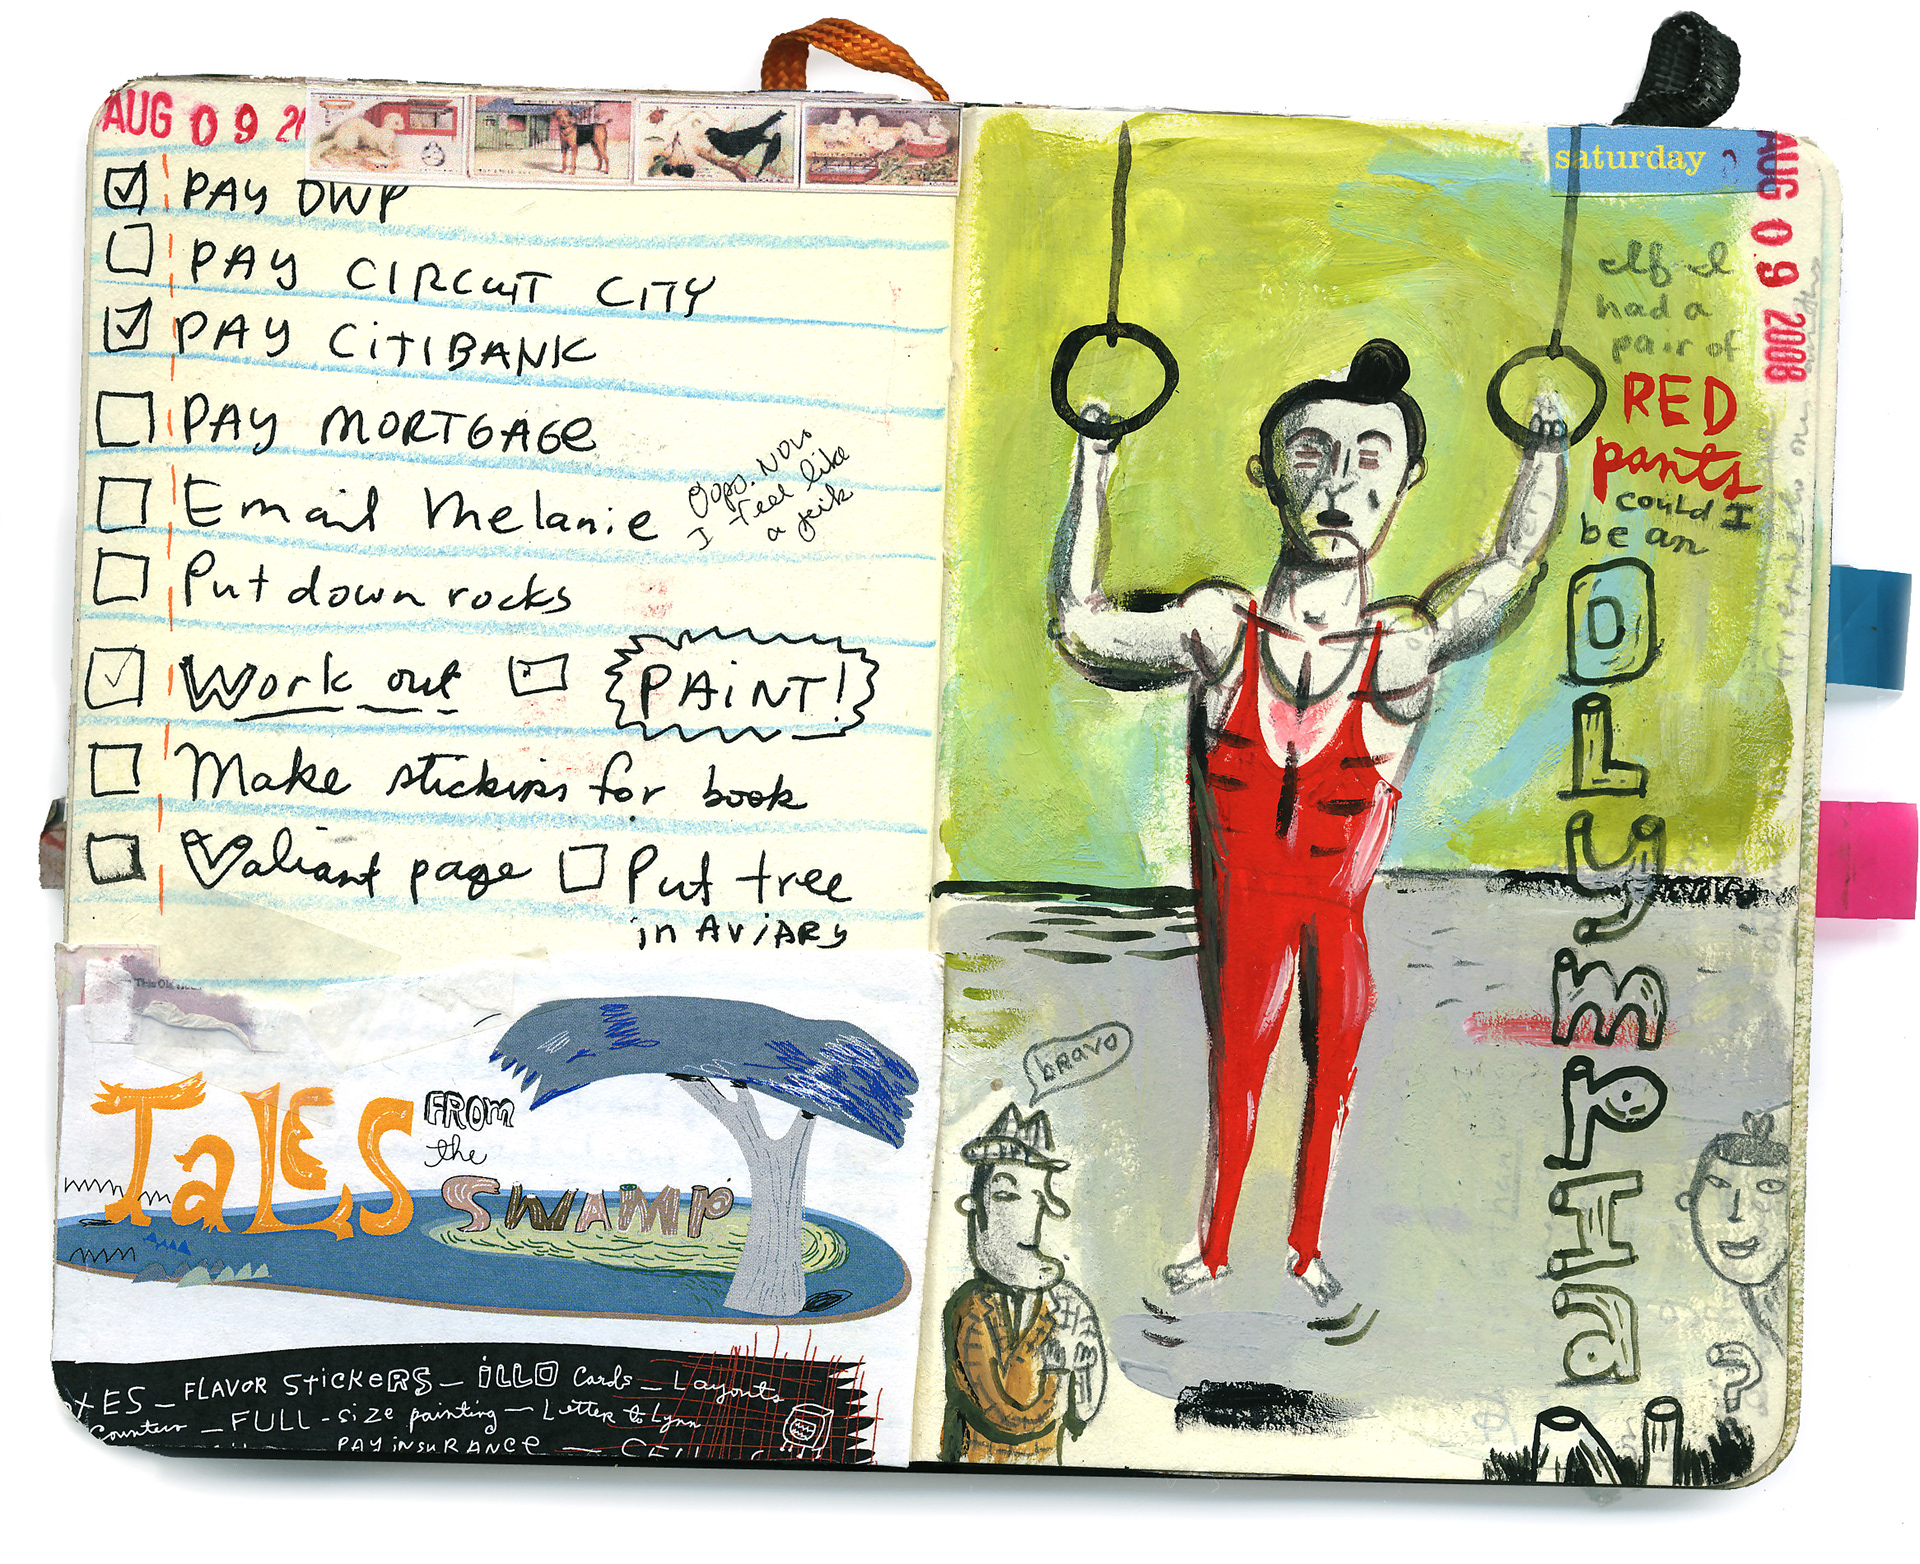 AUG 09 2
PAY DWP
PAY CIRCUIT CITY
PAY CITIBANK
PAY MORTGAGE
Email Melanie
Oops. Now
I feel like
a jerk
Put down rocks
Work out PAINT!
Make stickers for book
Valiant page Put tree
in AviARy
This Old
TaLES FROM
the
SWAMP
FLAVOR STICKERS – ILLO Cards – Layouts
Counters – FULL-size painting – Letter to Lynn
PAY INSURANCE –
saturday
AUG 09 2008
If I
had a
pair of
RED
pants
could I
be an
OLYMPIaN?
bravo